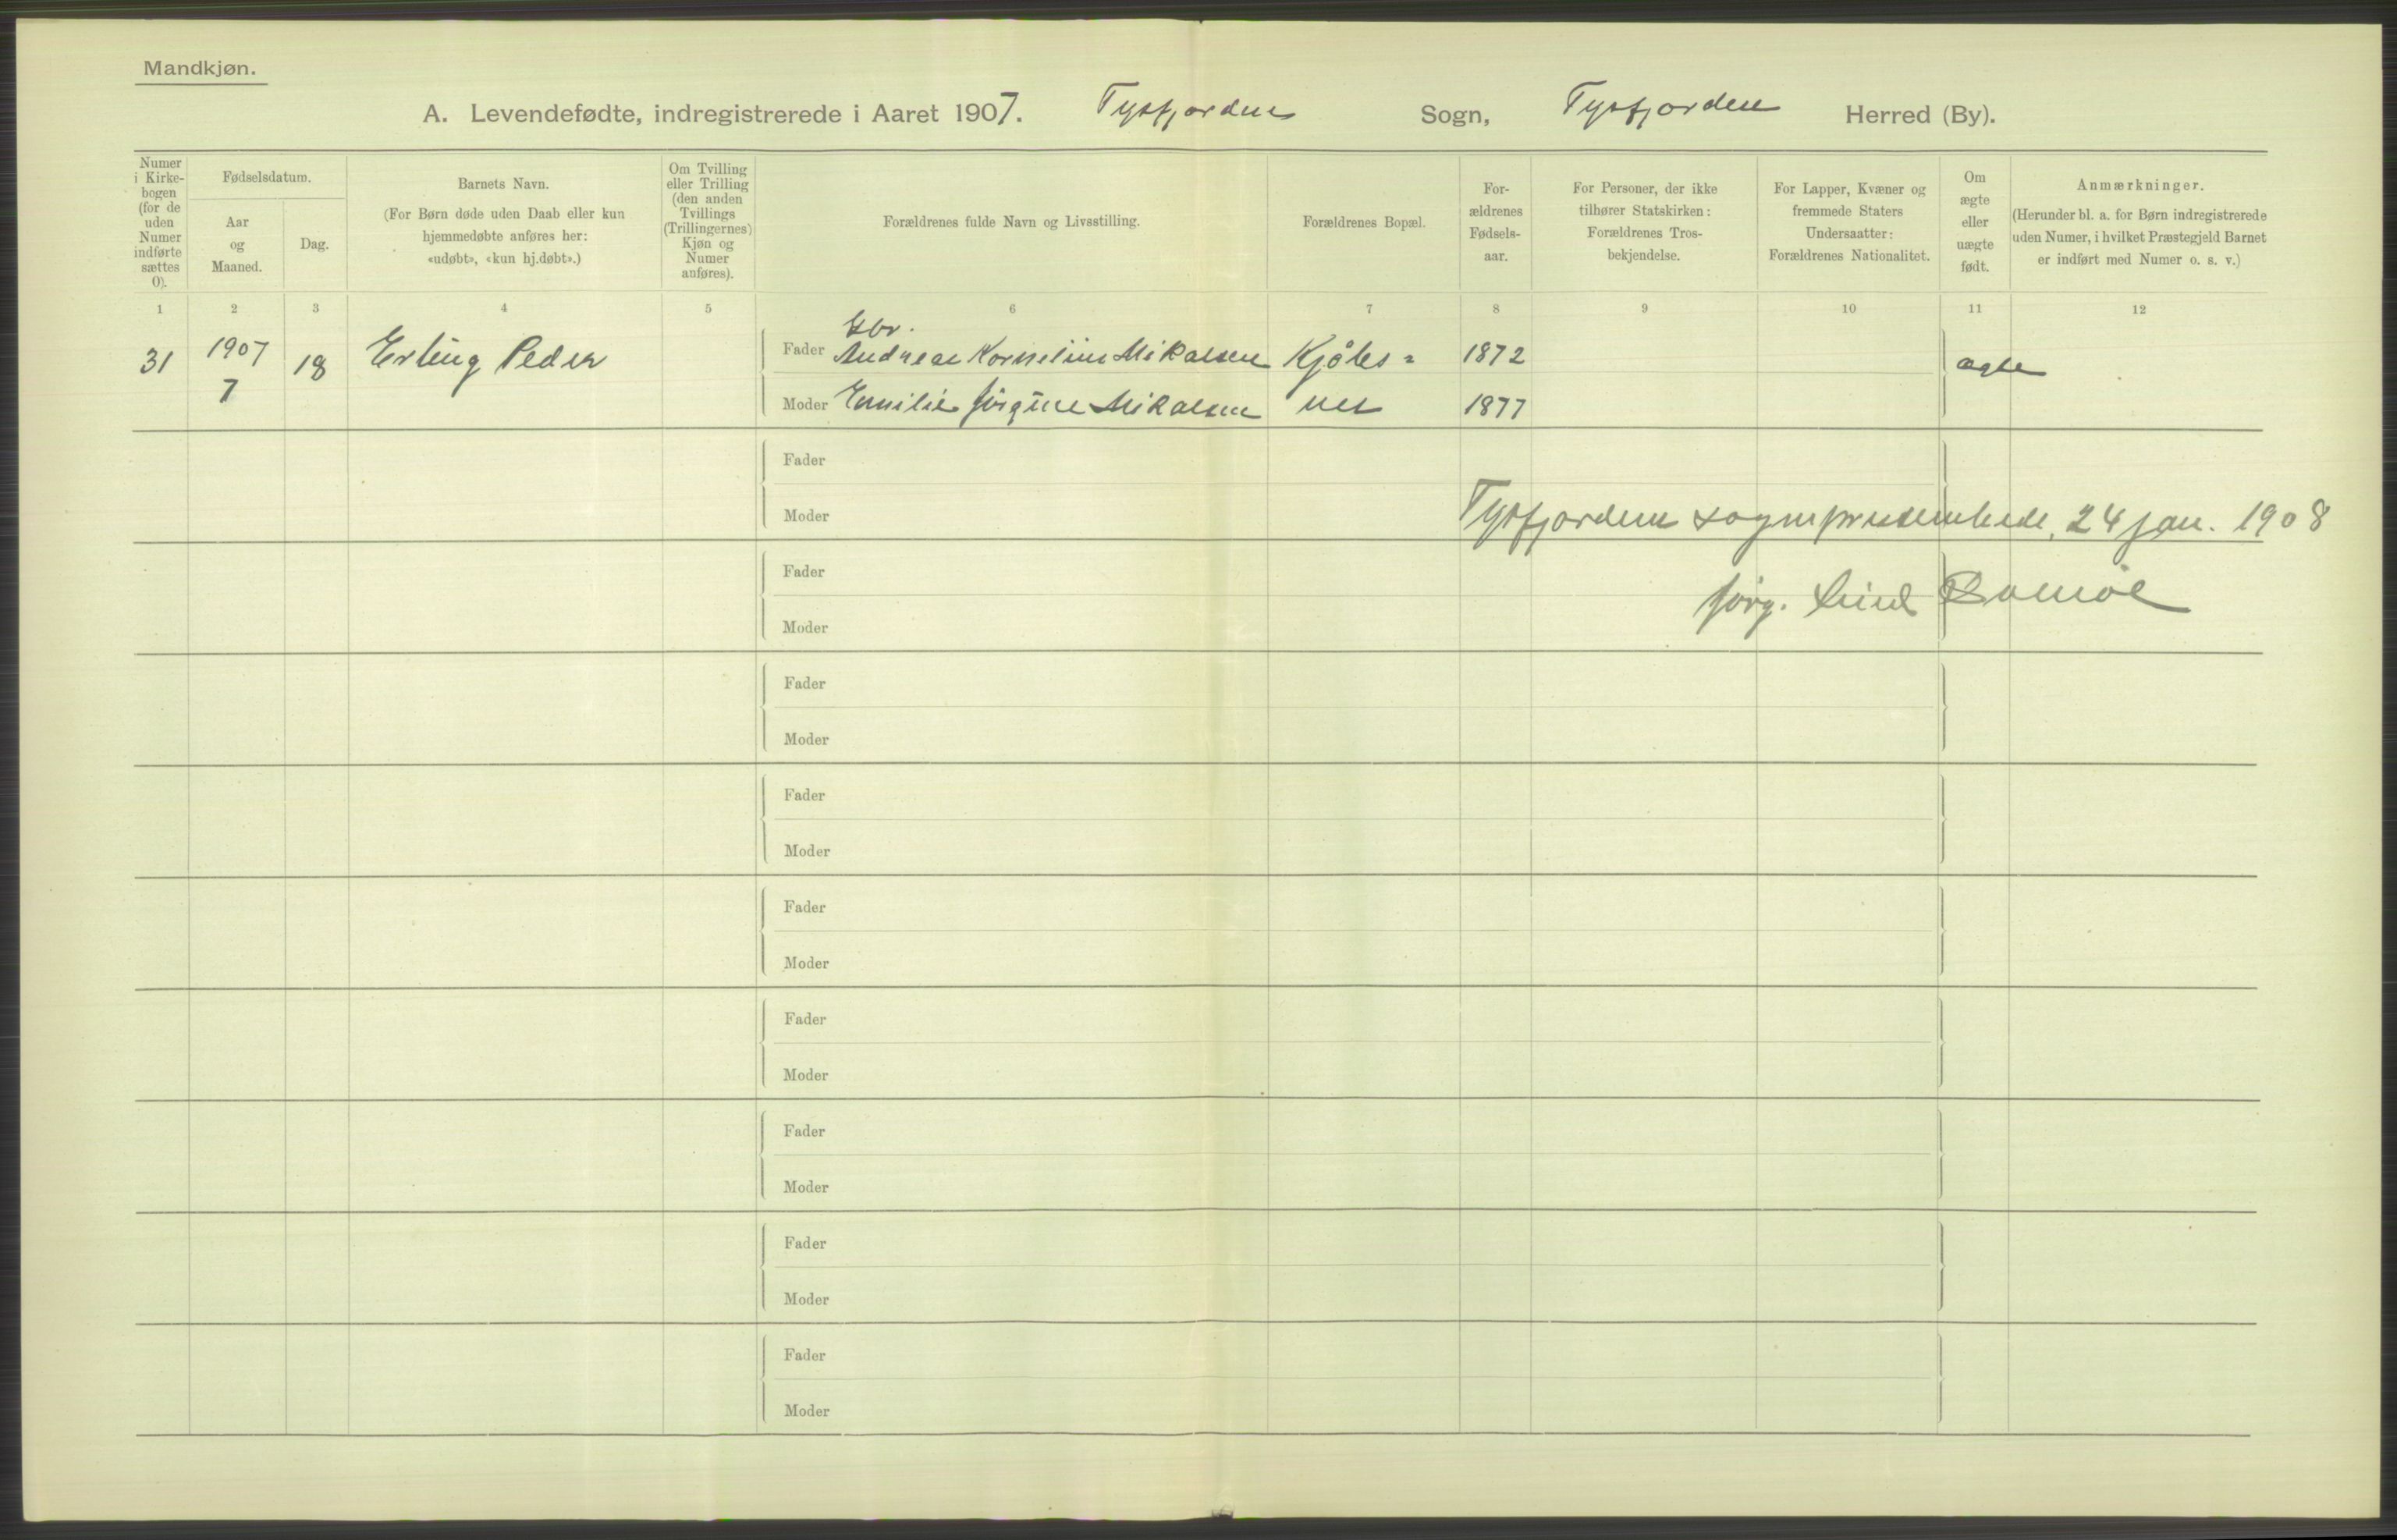 Mandkjøn.
A. Levendefødte, indregistrerede i Aaret 1907. Tysfjorden Sogn, Tysfjorden Herred (By).
Numer i Kirke-bogen (for de uden Numer indførte sættes 0).
Fødselsdatum.
Aar og Maaned.
Dag.
Barnets Navn.
(For Børn døde uden Daab eller kun
hjemmedøbte anføres her:
«udøbt», «kun hj.døbt».)
Om Tvilling
eller Trilling
(den anden
Tvillings
(Trillingernes)
Kjøn og
Numer
anføres).
Forældrenes fulde Navn og Livsstilling.
Forældrenes Bopæl.
For-
ældrenes
Fødsels-
aar.
For Personer, der ikke
tilhører Statskirken:
Forældrenes Tros-
bekjendelse.
For Lapper, Kvæner og
fremmede Staters
Undersaatter:
Forældrenes Nationalitet.
Om
ægte
eller
uægte
født.
Anmærkninger.
(Herunder bl. a. for Børn indregistrerede
uden Numer, i hvilket Præstegjeld Barnet
er indført med Numer o. s. v.)
1 2 3 4 5 6 7 8 9 10 11 12
31 1907 7 18 Erling Peder
Gbr.
Fader Andreas Kornelius Mikalsen Kjøbs= 1872 ægte
Moder Emilie Jørgine Mikalsen nes 1877
Fader
Moder
Tysfjordens sogneprestembede, 24 jan. 1908
Fader
Jørg.
Moder
Fader
Moder
Fader
Moder
Fader
Moder
Fader
Moder
Fader
Moder
Fader
Moder
Fader
Moder